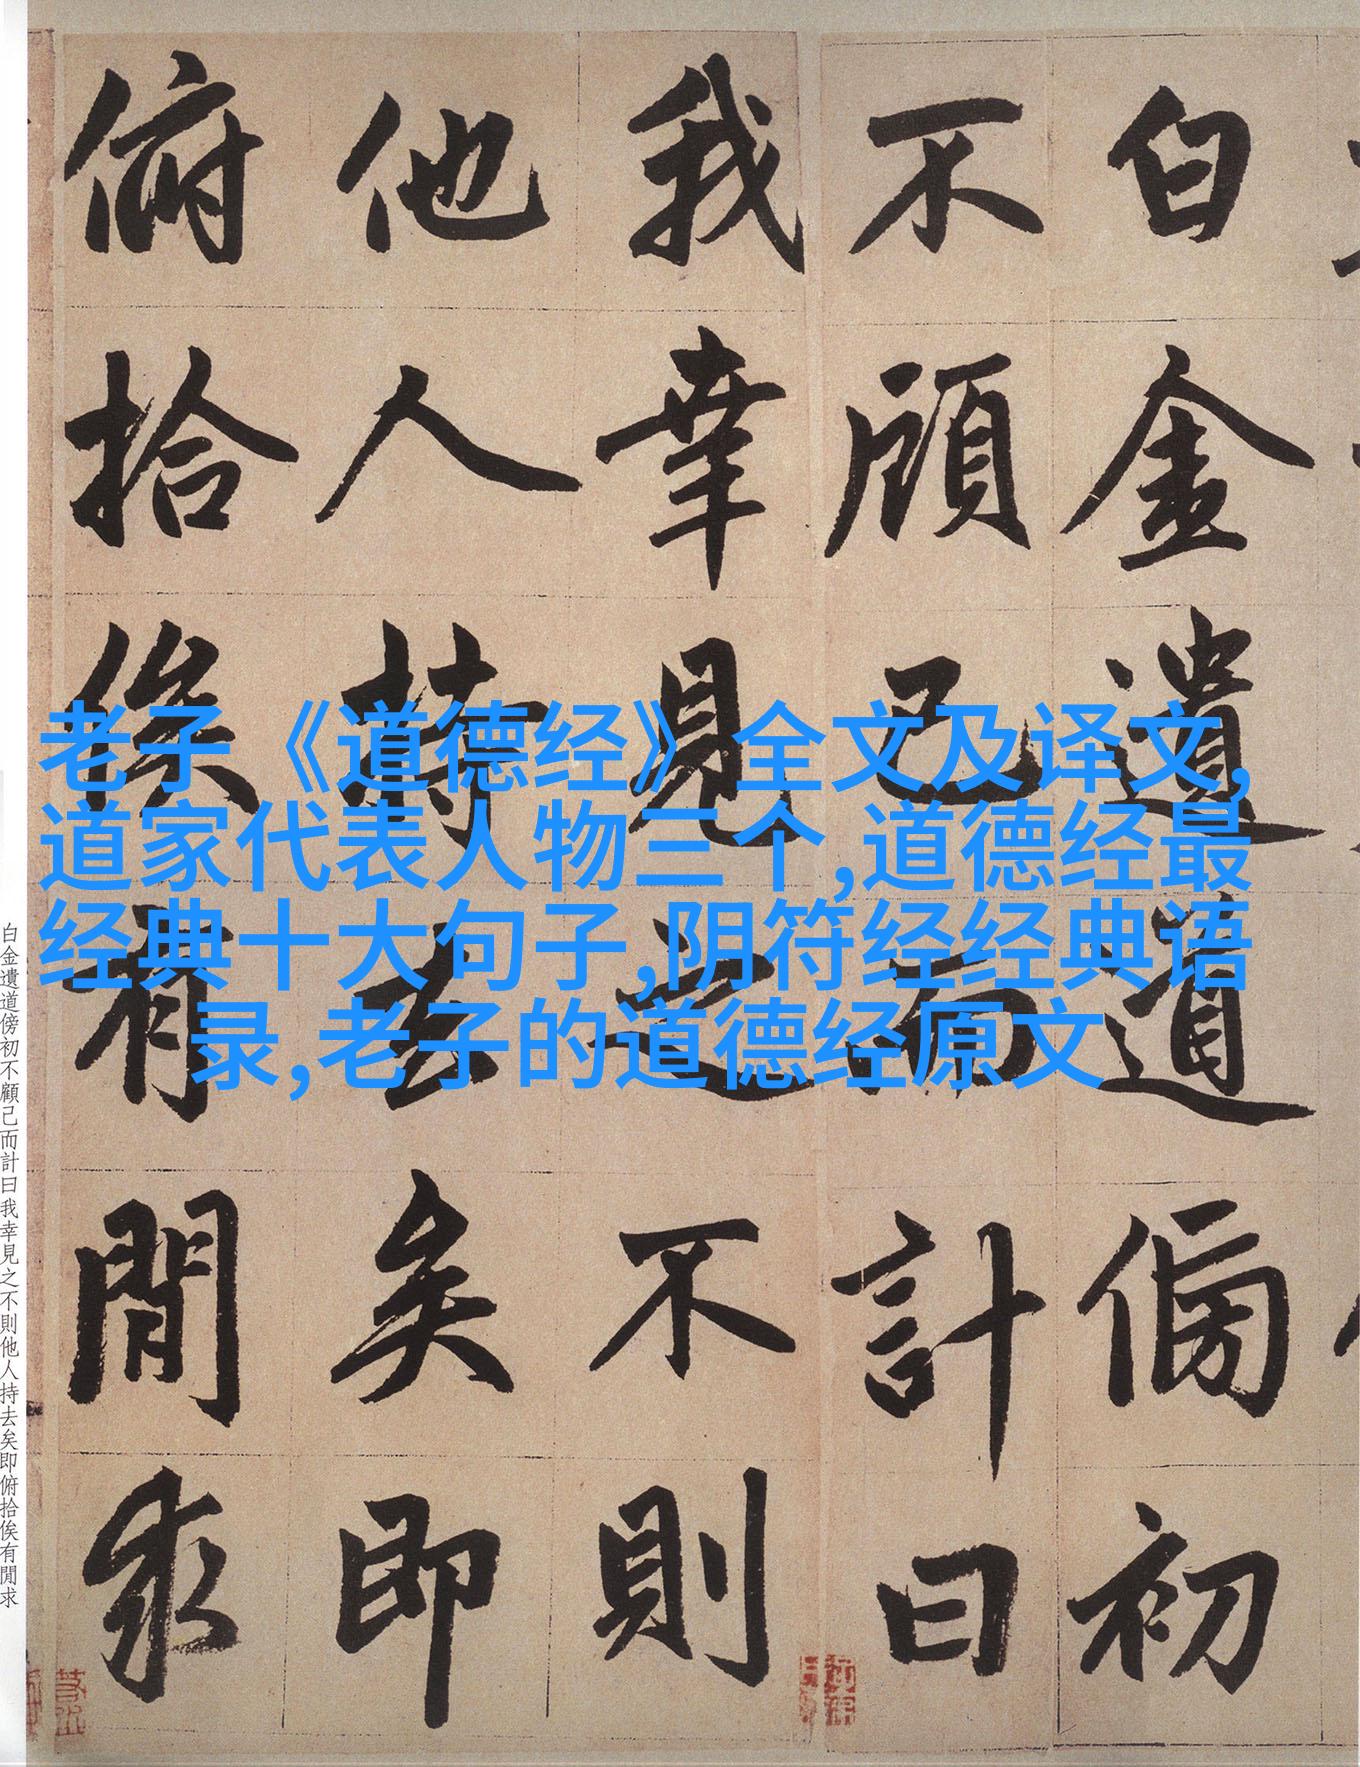 白金遺道傍初
不顧己而計曰
我幸見之不則
他人持去矣即
俯拾俟有閒求
老子《道德经》全文及译文,
道家代表人物三个,道德经最
经典十大句子,阴符经经典语
录,老子的道德经原文
白金遺道傍初不顧己而計曰我幸見之不則他人持去矣即俯拾俟有閒求